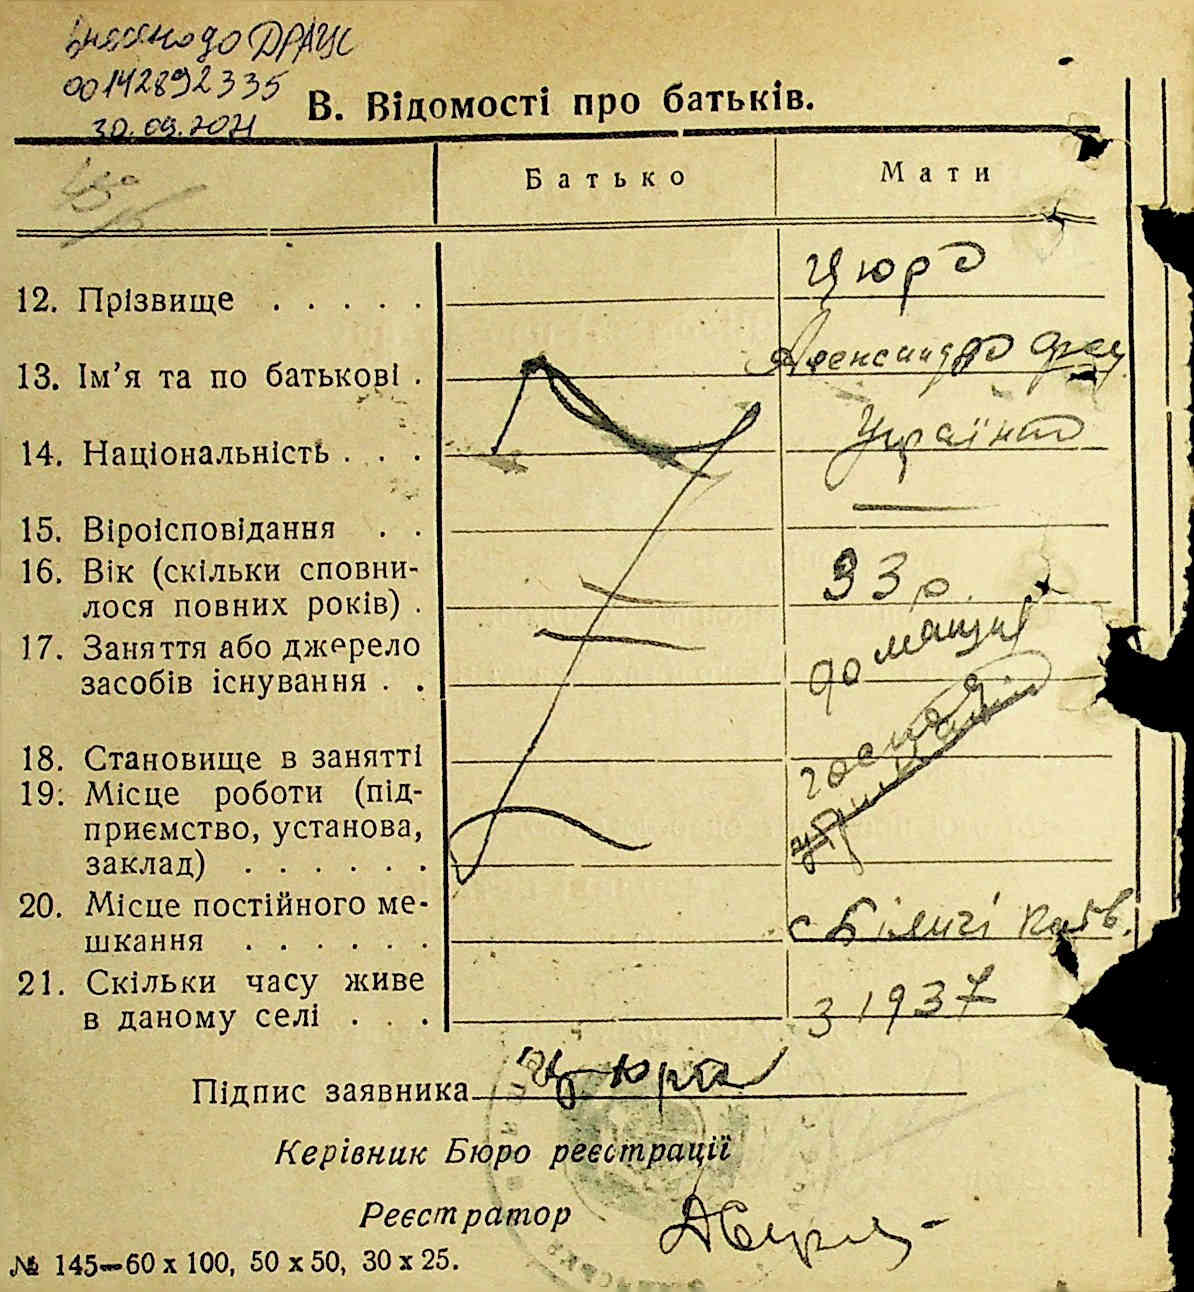 внесено до ДРАЦС
00142892335
30.09.2021
В. Відомості про батьків.
Батько Мати
12. Прізвище . . . . . Цюра
13. Ім'я та по батькові . Александра
14. Національність . . . Українка
15. Віроісповідання . . —
16. Вік (скільки сповни-
лося повних років) . 33 р.
17. Заняття або джерело
засобів існування . . домашня
господ.
18. Становище в занятті
19. Місце роботи (під-
приємство, установа,
заклад) . . . . . .
20. Місце постійного ме-
шкання . . . . . . с Біличі
21. Скільки часу живе
в даному селі . . . З 1937
Підпис заявника Цюра
Керівник Бюро реєстрації
Реєстратор
№ 145—60 х 100, 50 х 50, 30 х 25.